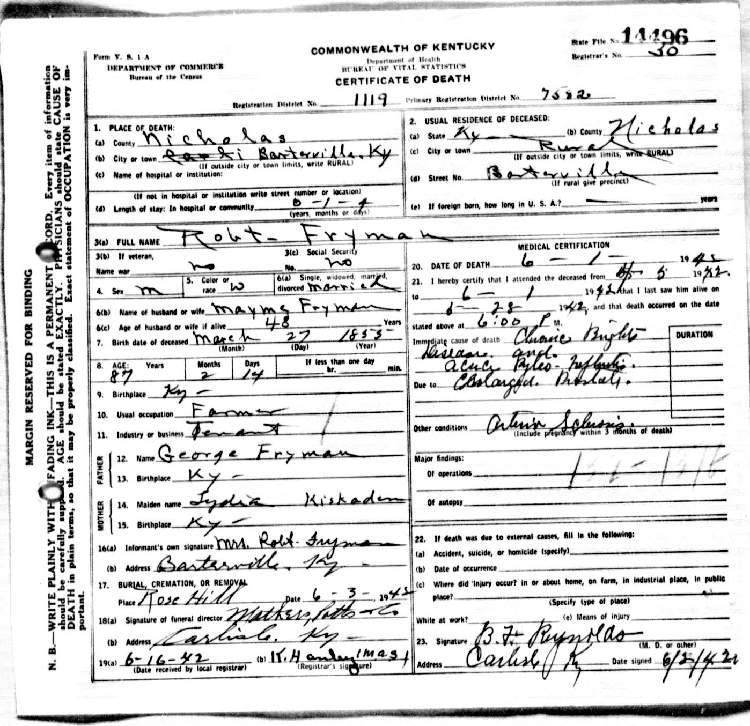 Form V. S. 1 A
DEPARTMENT OF COMMERCE
Bureau of the Census
COMMONWEALTH OF KENTUCKY
Department of Health
BUREAU OF VITAL STATISTICS
CERTIFICATE OF DEATH
State File No. 14496
Registrar's No. 50
Registration District No. 1119 Primary Registration District No. 7582
1. PLACE OF DEATH:
(a) County Nicholas
(b) City or town Barterville, Ky
(If outside city or town limits, write RURAL)
(c) Name of hospital or institution:
(If not in hospital or institution write street number or location)
(d) Length of stay: In hospital or community
(years, months or days)
2. USUAL RESIDENCE OF DECEASED:
(a) State Ky (b) County Nicholas
(c) City or town Rural
(If outside city or town limits, write RURAL)
(d) Street No. Barterville
(If rural give precinct)
(e) If foreign born, how long in U. S. A.? years
3(a) FULL NAME Robt- Fryman
3(b) If veteran,
Name war no
3(c) Social Security
No. no
4. Sex m
5. Color or
race w
6(a) Single, widowed, married,
divorced married
6(b) Name of husband or wife Mayme Fryman
6(c) Age of husband or wife if alive 48 Years
7. Birth date of deceased March 27 1855
(Month) (Day) (Year)
8. AGE: Years Months Days If less than one day
87 2 14 hr. min.
9. Birthplace Ky-
10. Usual occupation Farmer
11. Industry or business Tenant
FATHER
12. Name George Fryman
13. Birthplace Ky-
MOTHER
14. Maiden name Lydia Kiskaden
15. Birthplace Ky-
16(a) Informant's own signature Mrs. Robt. Fryman
(b) Address Barterville, Ky-
17. BURIAL, CREMATION, OR REMOVAL
Place Rose Hill Date 6-3-1942
18(a) Signature of funeral director Mathers, Potts & Co
(b) Address Carlisle, Ky-
19(a) 6-16-42 (b)
(Date received by local registrar) (Registrar's signature)
MEDICAL CERTIFICATION
20. DATE OF DEATH 6-1- 1942
21. I hereby certify that I attended the deceased from 5 1942
to 6-1 1942 that I last saw him alive on
28 1942, and that death occurred on the date
stated above at 6:00 P M.
Immediate cause of death Chronic Brights
Disease and
Acute Pyleo-
Due to Enlarged Prostate.
DURATION
Other conditions Arterio Sclerosis.
(Include pregnancy within 3 months of death)
Major findings:
Of operations
Of autopsy
22. If death was due to external causes, fill in the following:
(a) Accident, suicide, or homicide (specify)
(b) Date of occurrence
(c) Where did injury occur? in or about home, on farm, in industrial place, in public
place?
(Specify type of place)
While at work? (e) Means of injury
23. Signature B. F. Reynolds
(M. D. or other)
Address Carlisle Ky Date signed 6/2/42
MARGIN RESERVED FOR BINDING
N. B.—WRITE PLAINLY WITH FADING INK—THIS IS A PERMANENT RECORD. Every item of information
should be carefully supplied. AGE should be stated EXACTLY. PHYSICIANS should state CAUSE OF
DEATH in plain terms, so that it may be properly classified. Exact statement of OCCUPATION is very im-
portant.